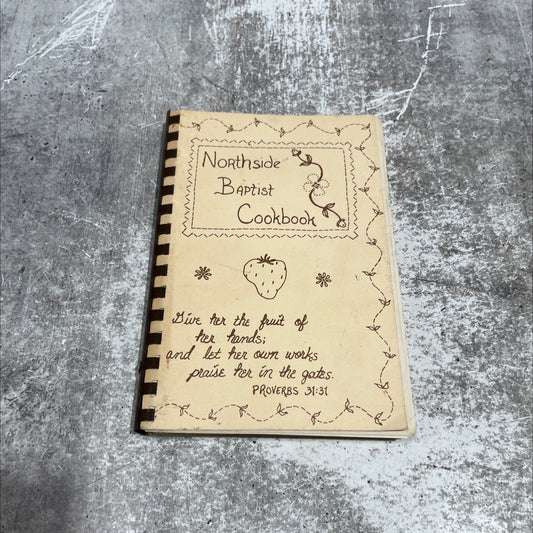 Northside
Baptist
Cookbook
Give her the fruit of
her hands;
and let her own works
praise her in the gates.
PROVERBS 31:31